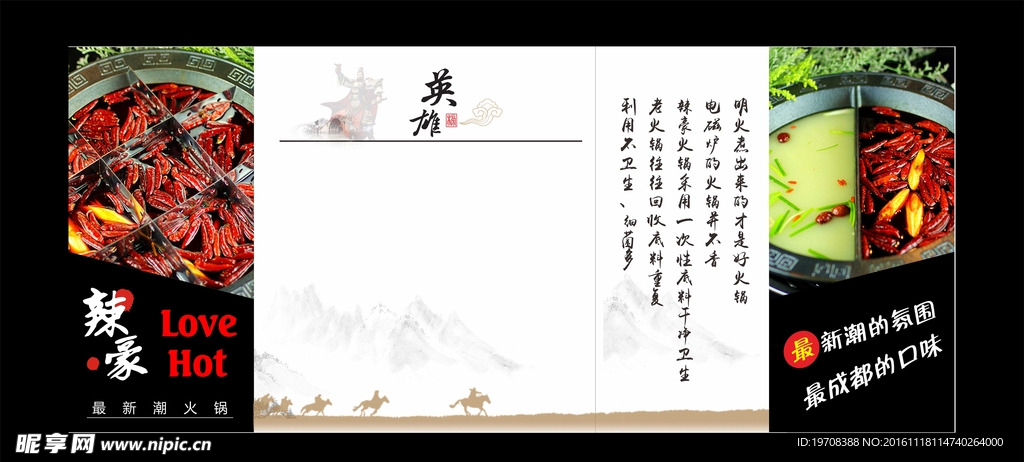 英雄
明火煮出来的才是好火锅
电磁炉的火锅并不香
辣豪火锅采用一次性底料干净卫生
老火锅往往回收底料重复
利用不卫生、细菌多
辣豪
Love
Hot
最新潮火锅
最新潮的氛围
最成都的口味
昵享网 www.nipic.cn
ID:19708388 NO:20161118114740264000